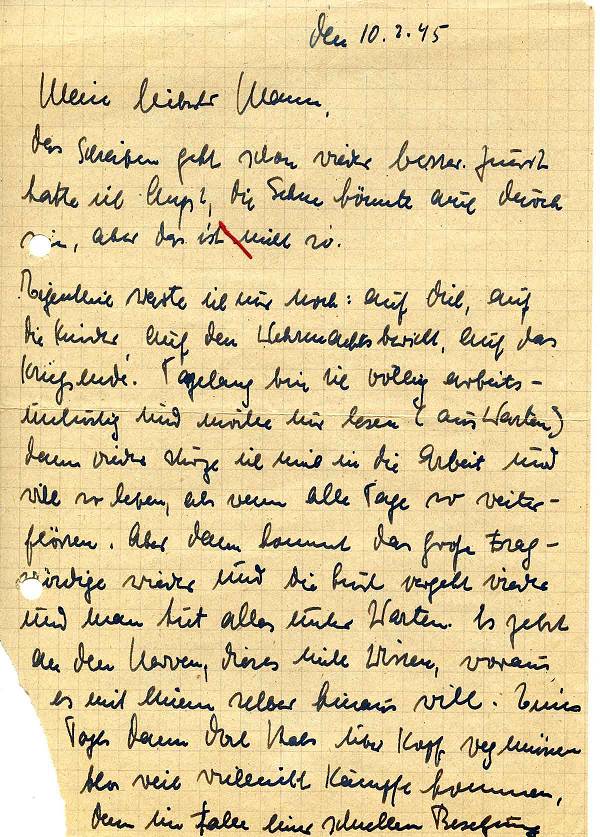 den 10.2.45
Mein liebster Mann,
das Schreiben geht schon wieder besser. Zuerst
hatte ich Angst, die Sehne könnte auch durch
sein, aber das ist nicht so.
Eigentlich warte ich nur noch: auf dich, auf
die Kinder auf den Wehrmachtsbericht, auf das
Kriegsende. Tagelang bin ich völlig arbeits-
unlustig und möchte nur lesen (aus Warten)
dann wieder stürze ich mich in die Arbeit und
will so leben, als wenn alle Tage so weiter-
flössen. Aber dann kommt das große Frag-
würdige wieder und die Lust vergeht wieder
und man tut alles unter Warten. Es zehrt
an den Nerven, dieses nicht Wissen, worauf
es mit Einem selber hinaus will. Eines
Tages dann doch Hals über Kopf weg müssen
blos weil vielleicht Kämpfe kommen,
denn im Falle einer schnellen Besetzung